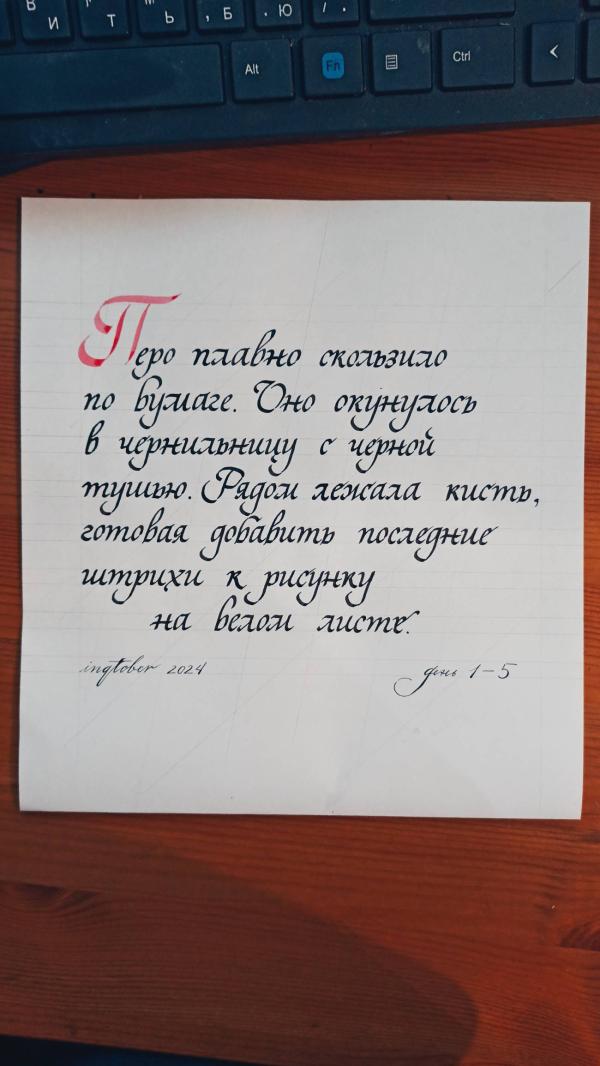 В И Т Ь , Б . Ю / .
Alt Fn Ctrl <
Перо плавно скользило
по бумаге. Оно окунулось
в чернильницу с черной
тушью. Рядом лежала кисть,
готовая добавить последние
штрихи к рисунку
на белом листе.
inqtober 2024 день 1-5